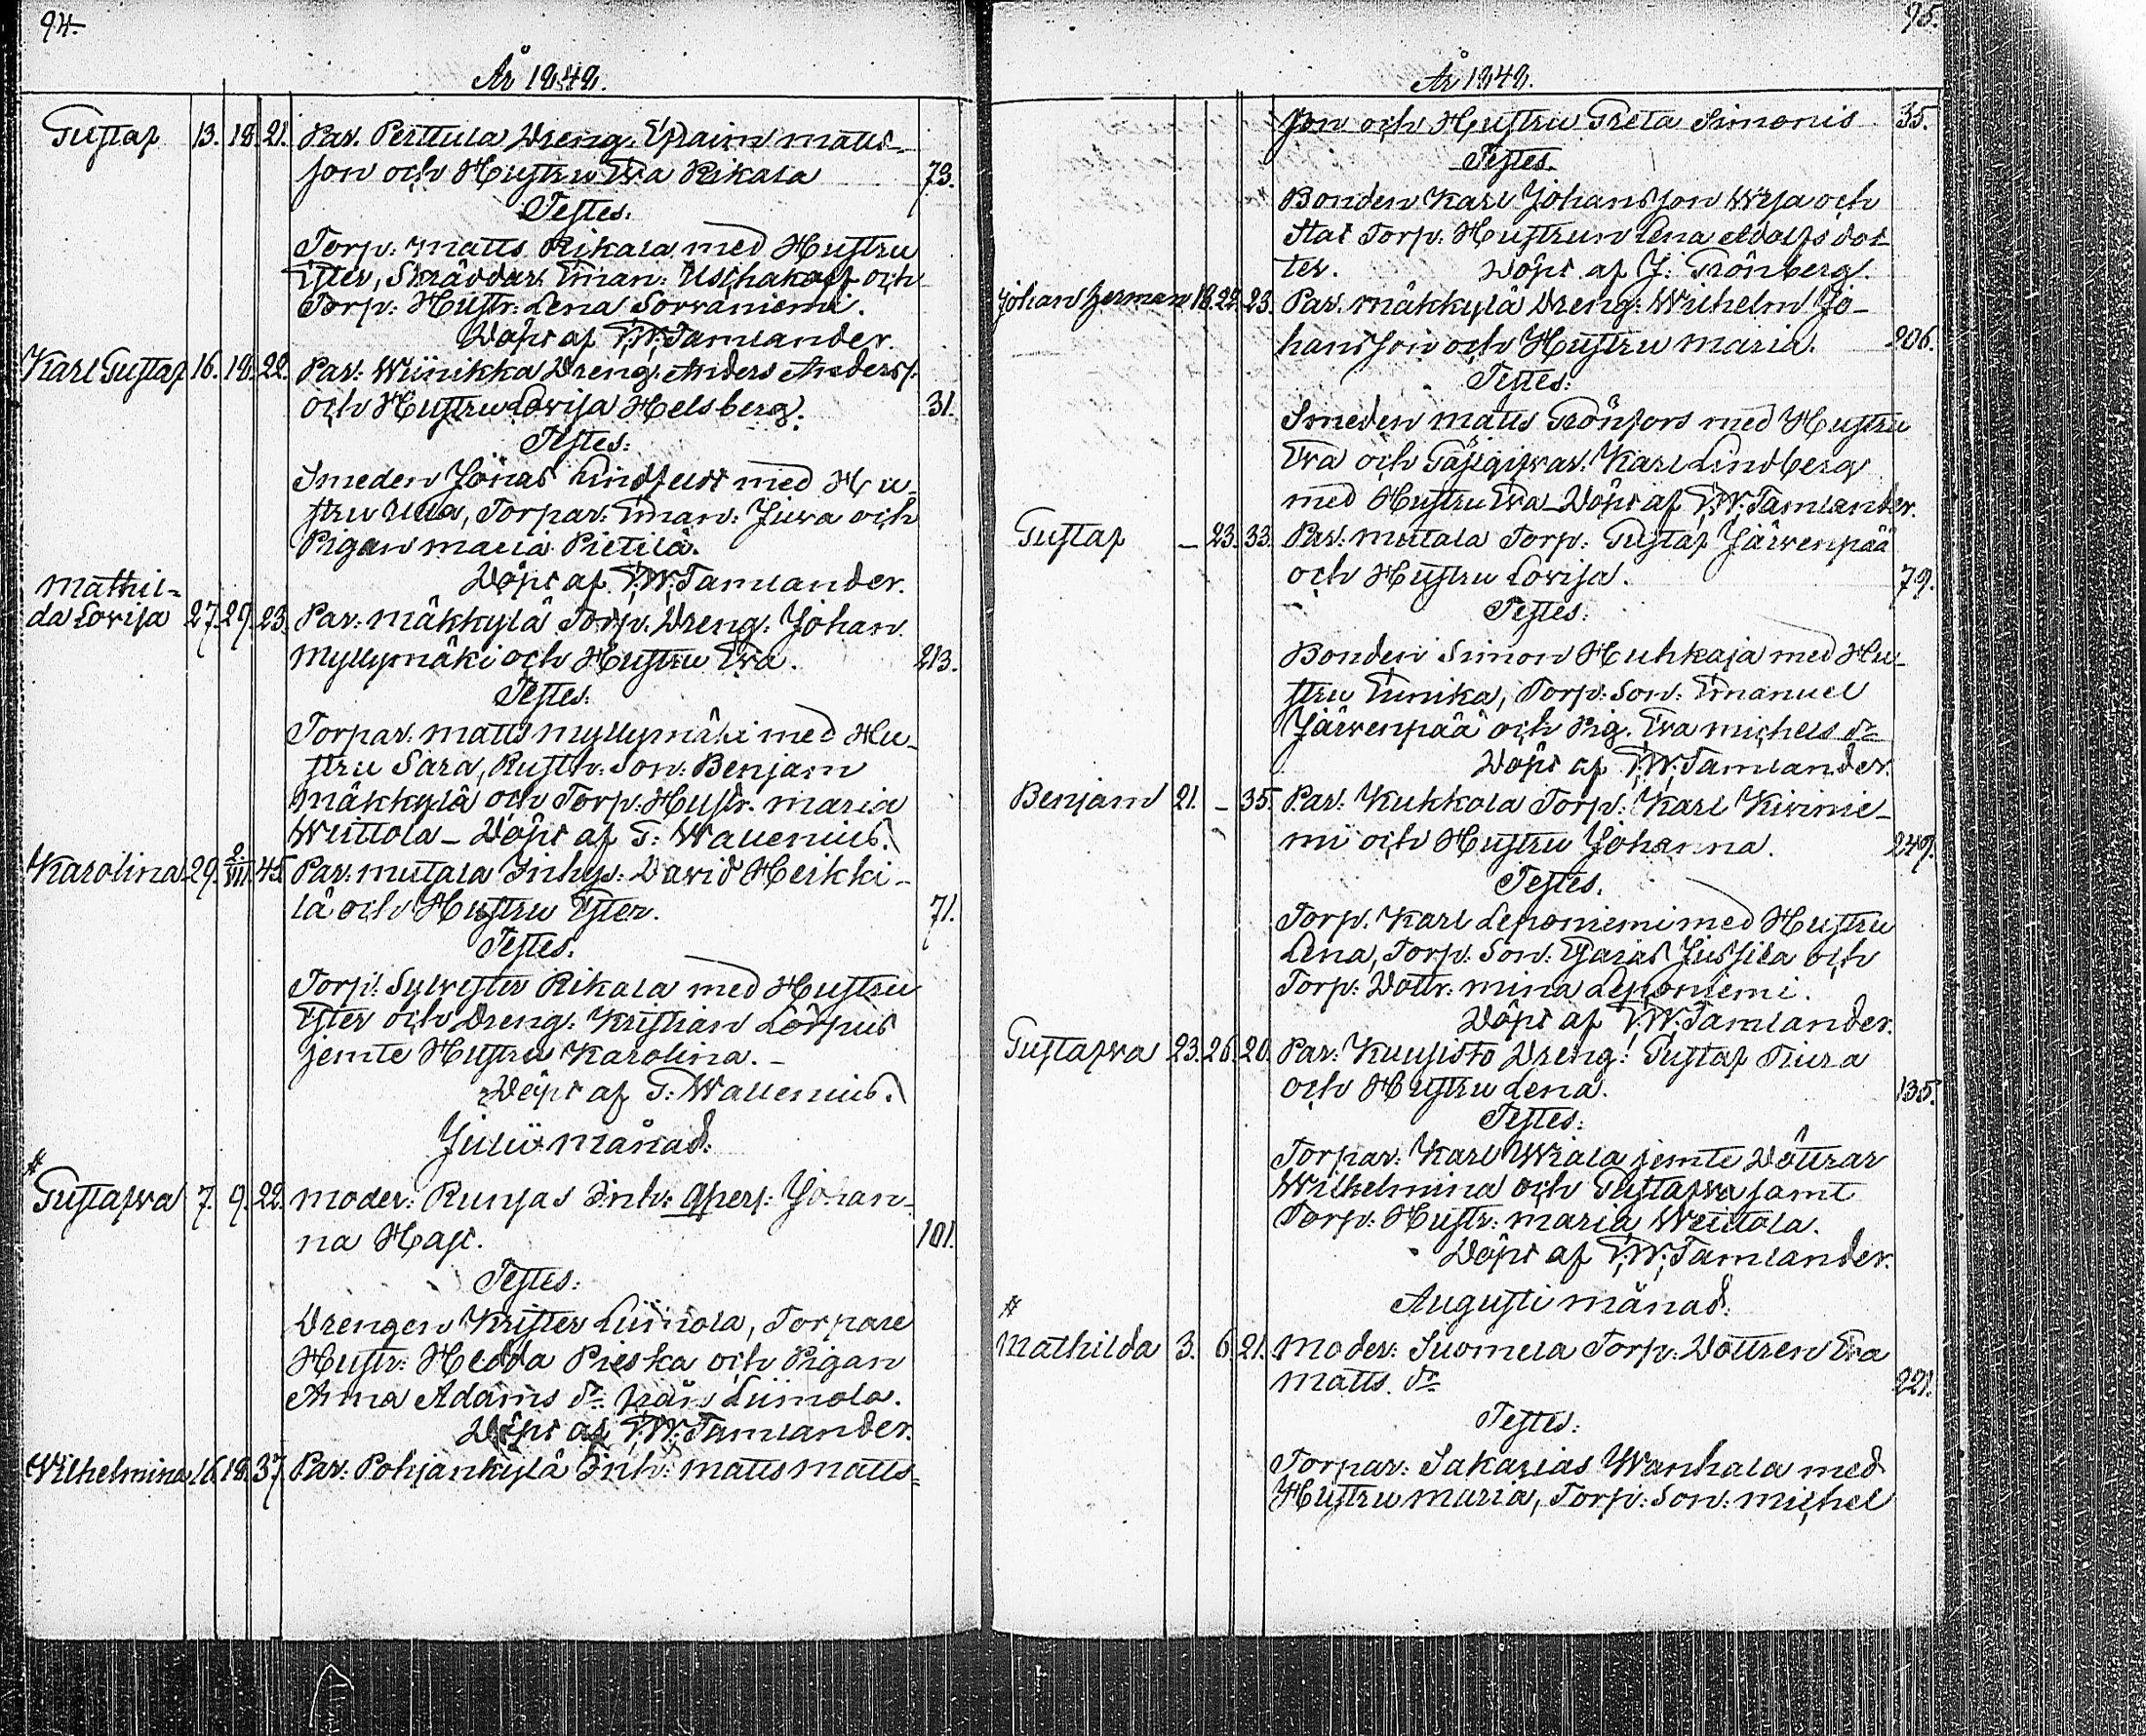 94.
År 1848.
Gustaf 13. 18. 21. Par. Perttula Dreng. Efraim Matts-
son och Hustru Eva Rikala 73.
Testes.
Torp: Matts Rikala med Hustru
Ester, Skräddar. Eman: Uschakoff och
Torp: Hustr: Lena Sorvaniemi.
Döpt af F.W. Tamlander.
Karl Gustaf 16. 18. 22. Par: Wiinikka Dreng. Anders Anderss.
och Hustru Lovisa Helsberg. 31.
Testes:
Smeden Jonas Lindfelt med Hu-
stru Ulla, Torpar: Eman: Juva och
Pigan Maria Pietilä.
Döpt af F.W. Tamlander.
Mathil-
da Lovisa 27. 29. 23. Par: Mäkkylä Torp. Dreng: Johan
Myllymäki och Hustru Eva. 213.
Testes:
Torpar: Matts Myllymäki med Hu-
stru Sara, Rusth: Son: Benjam
Mäkkylä och Torp: Hustr. Maria
Weittola – Döpt af G: Wallenius.
Karolina 29. 2/VII. 45. Par: Mutala Inhys: David Heikki-
lä och Hustru Ester. 71.
Testes.
Torp: Sylvester Rikala med Hustru
Ester och Dreng: Kristian Lörpus
jemte Hustru Karolina. –
Döpt af G: Wallenius.
Julii månad:
#
Gustafva 7. 9. 22. Moder: Runsas Inh: Qpers: Johan-
na Hast. 101.
Testes:
Drengen Krister Liinola, Torpare
Hustr: Hedda Pieska och Pigan
Anna Adams dr från Liinola.
Döpt af F.W. Tamlander.
Wilhelmina 16. 18. 37. Par: Pohjankylä Inh: Matts Matts-
95.
År 1848.
son och Hustru Greta Simonis 35.
Testes.
Bonden Karl Johansson Wesa och
Stat Torp: Hustrun Lena Adolfs dot
ter. Döpt af J. Grönberg.
Johan Herman 18. 22. 23. Par: Mäkkylä Dreng: Wilhelm Jo-
hansson och Hustru Maria. 206.
Testes:
Smeden Matts Grönfors med Hustru
Eva och Gästgifvar. Karl Lindberg
med Hustru Eva – Döpt af F.W. Tamlander.
Gustaf – 23. 33. Par: Mutala Torp: Gustaf Järvenpää
och Hustru Lovisa. 79.
Testes:
Bonden Simon Huhkaja med Hu-
stru Ennika, Torp: Son: Emanuel
Järvenpää och Pig. Eva Michels dr
Döpt af F.W. Tamlander.
Benjam 21. – 35. Par: Kukkola Torp: Karl Kivinie-
mi och Hustru Johanna. 249.
Testes.
Torp. Karl Leponiemi med Hustru
Lena, Torp. Son: Esaias Jussila och
Torp: Dottr: Mina Leponiemi.
Döpt af F.W. Tamlander.
Gustafva 23. 26. 20. Par: Kuusisto Dreng: Gustaf Tiura
och Hustru Lena. 135.
Testes:
Torpar: Karl Wiala jemte Döttrar
Wilhelmina och Gustafva samt
Torp: Hustr: Maria Weittola.
Döpt af F.W. Tamlander.
Augusti månad:
#
Mathilda 3. 6. 21. Moder: Suomela Torp: Dottren Eva
Matts. dr 221.
Testes:
Torpar: Sakarias Wanhala med
Hustru Maria, Torp: Son: Michel